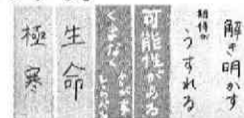 解き明かす
期待が
うすれる
可能性がある
くまなく
生命
極寒